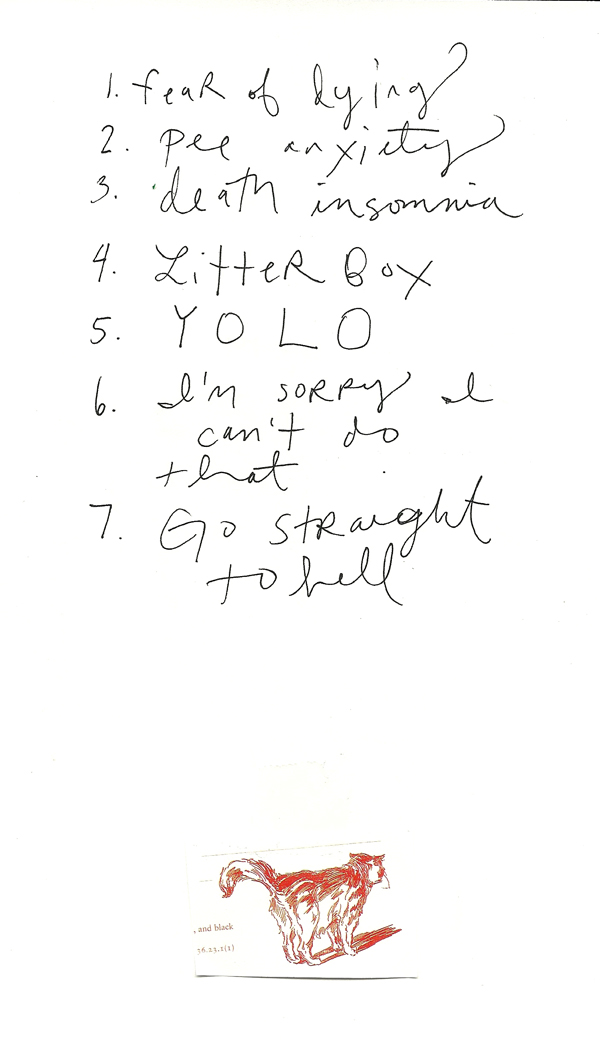 1. fear of dying
2. pee anxiety
3. death insomnia
4. Litter Box
5. YOLO
6. I'm sorry I
can't do
that
7. Go straight
to hell
, and black
36.23.1(1)